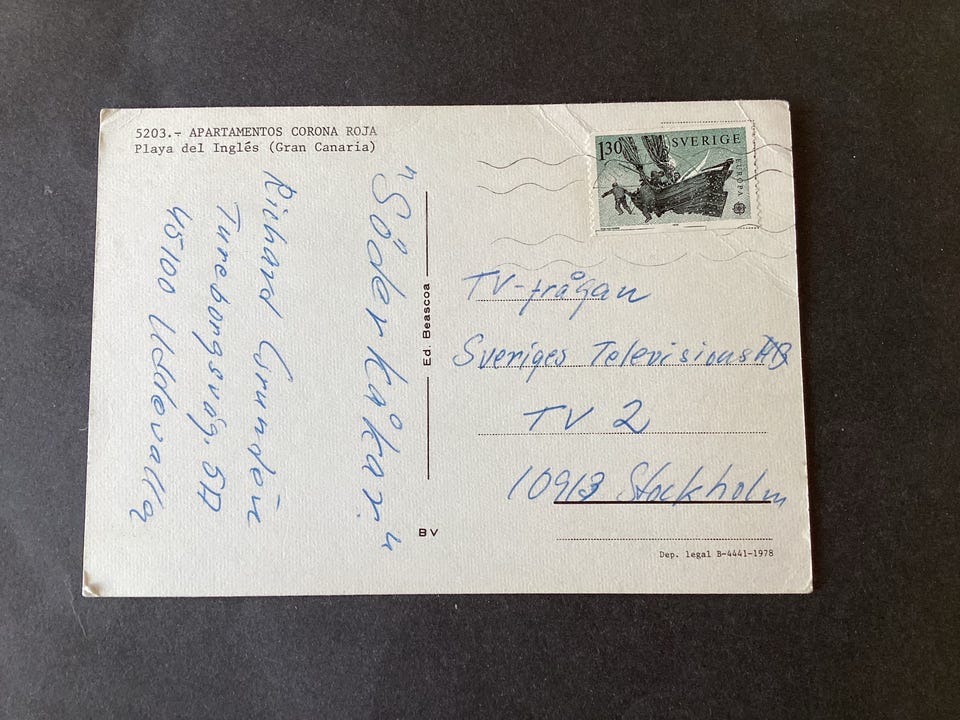 5203.- APARTAMENTOS CORONA ROJA
Playa del Inglés (Gran Canaria)
"Söderkåkar."
Richard Grundén
Tureborgsväg. 5A
45100 Uddevalla
Ed. Beascoa
BV
1.30 SVERIGE
EUROPA
TV-frågan
Sveriges Televisions AB
TV 2
10913 Stockholm
Dep. legal B-4441-1978